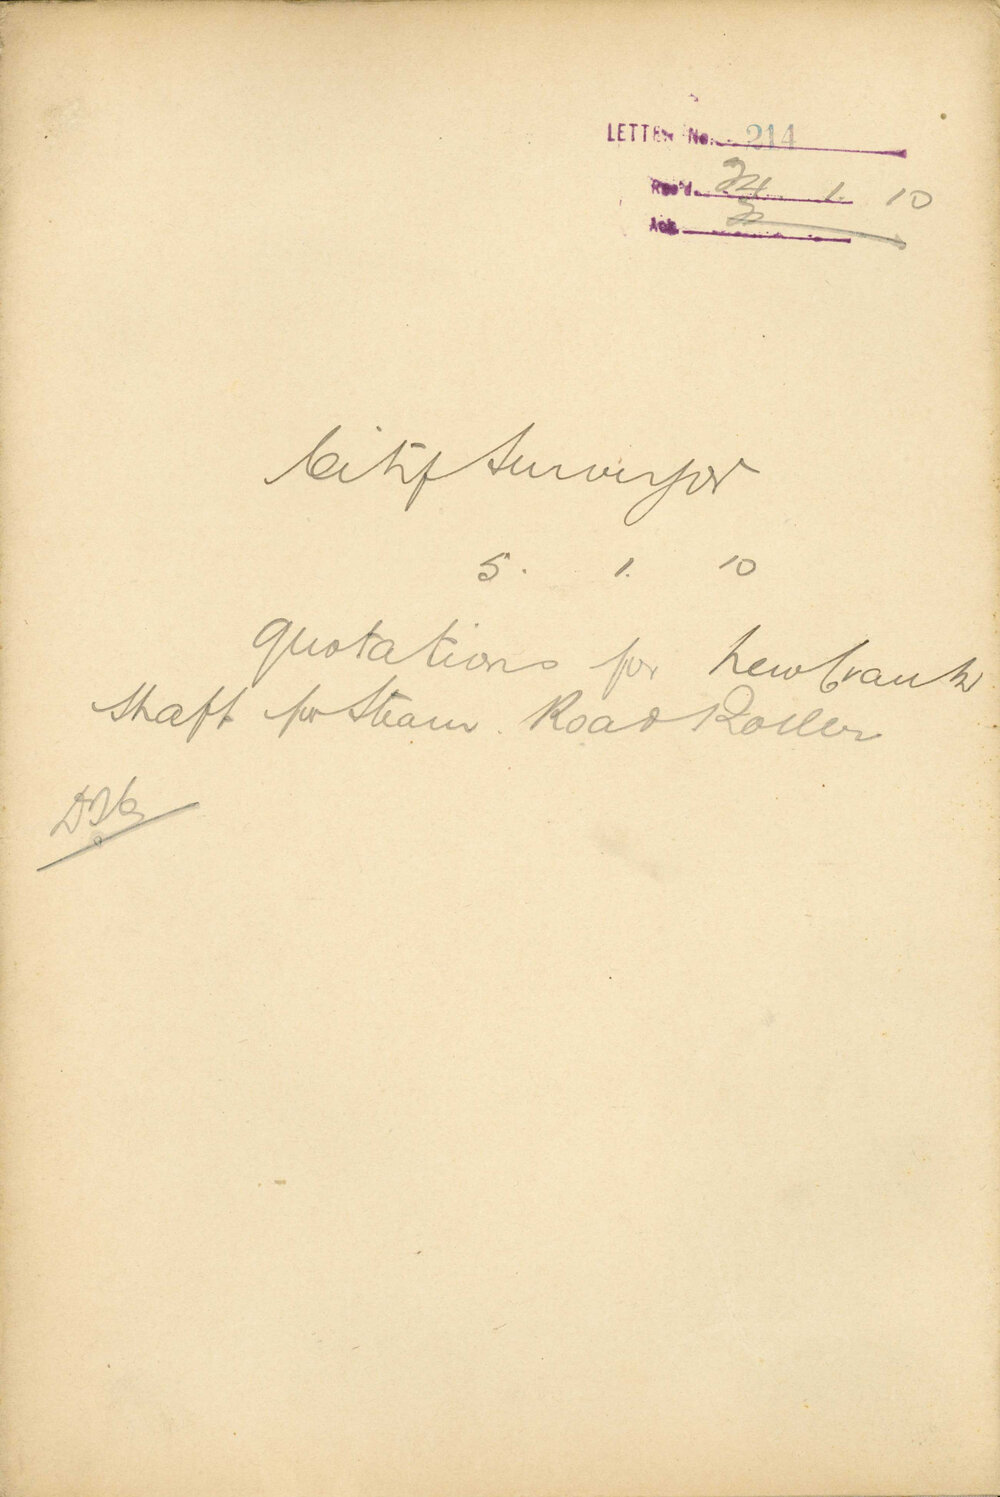 LETTER No. 214
Rec'd. 24. 1. 10
Ack.
City Surveyor
5. 1. 10
Quotations for New Crank
Shaft for Steam Road Roller